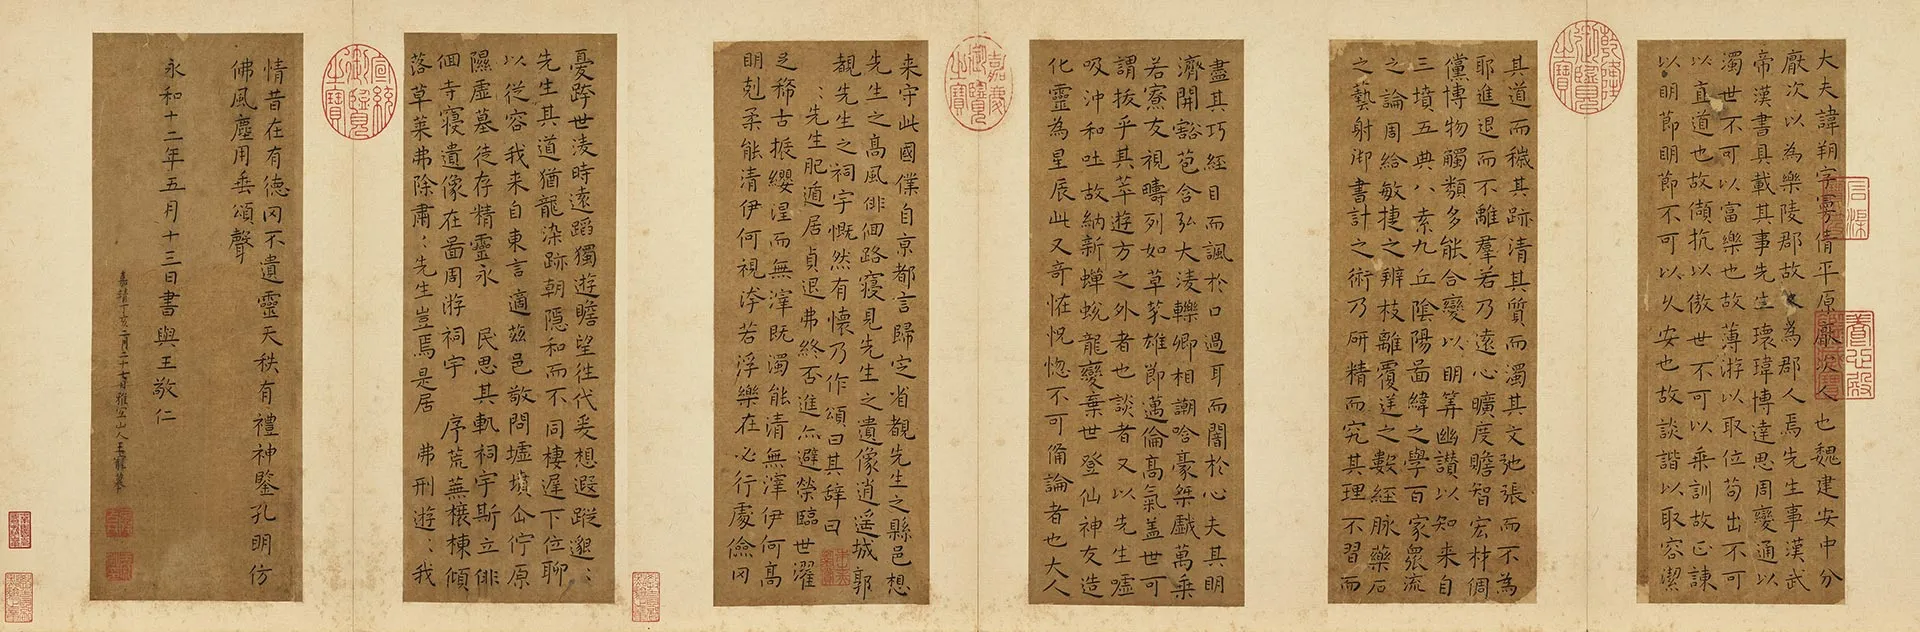 大夫諱朔字曼倩平原厭次人也魏建安中分
厭次以為樂陵郡故又為郡人焉先生事漢武
帝漢書具載其事先生瓌瑋博達思周變通以
濁世不可以富樂也故薄游以取位苟出不可
以直道也故頡抗以傲世不可以乘訓故正諫
以明節明節不可以久安也故談諧以取容潔
石渠寶笈
養心殿鑑藏寶
乾隆御覽之寶
其道而穢其跡清其質而濁其文弛張而不為
耶進退而不離羣若乃遠心曠度瞻智宏材倜
儻博物觸類多能合變以明筭幽讚以知來自
三墳五典八索九丘陰陽啚緯之學百家眾流
之論周給敏捷之辨枝離覆逆之數經脉藥石
之藝射御書計之術乃研精而究其理不習而
盡其巧經目而諷於口過耳而闇於心夫其明
濟開豁苞含弘大凌轢卿相謿哈豪桀戲萬乘
若寮友視疇列如草芥雄節邁倫高氣蓋世可
謂拔乎其萃遊方之外者也談者又以先生噓
吸沖和吐故納新蟬蛻龍變棄世登仙神友造
化靈為星辰此又奇恠怳惚不可俻論者也大人
嘉慶御覽之寶
来守此國僕自京都言歸定省覩先生之縣邑想
先生之高風徘徊路寢見先生之遺像逍遙城郭
覩先生之祠宇慨然有懷乃作頌曰其辞曰
：先生肥遁居貞退弗終否進亦避榮臨世濯
足稀古振纓涅而無滓既濁能清無滓伊何高
明剋柔能清伊何視汙若浮樂在必行處儉罔
憂跨世凌時遠蹈獨遊瞻望往代爰想遐蹤邈：
先生其道猶龍染跡朝隱和而不同棲遲下位聊
以從容我来自東言適茲邑敬問墟墳企佇原
隰虛墓徒存精靈永 民思其軌祠宇斯立徘
徊寺寢遺像在啚周游祠宇 序荒蕪榱棟傾
落草萊弗除肅：先生豈焉是居 弗刑遊：我
宣統御覽之寶
情昔在有德罔不遺靈天秩有禮神鑒孔明仿
佛風塵用垂頌聲
永和十二年五月十三日書與王敬仁
嘉靖丁亥二月二十七日雅宜山人王寵摹